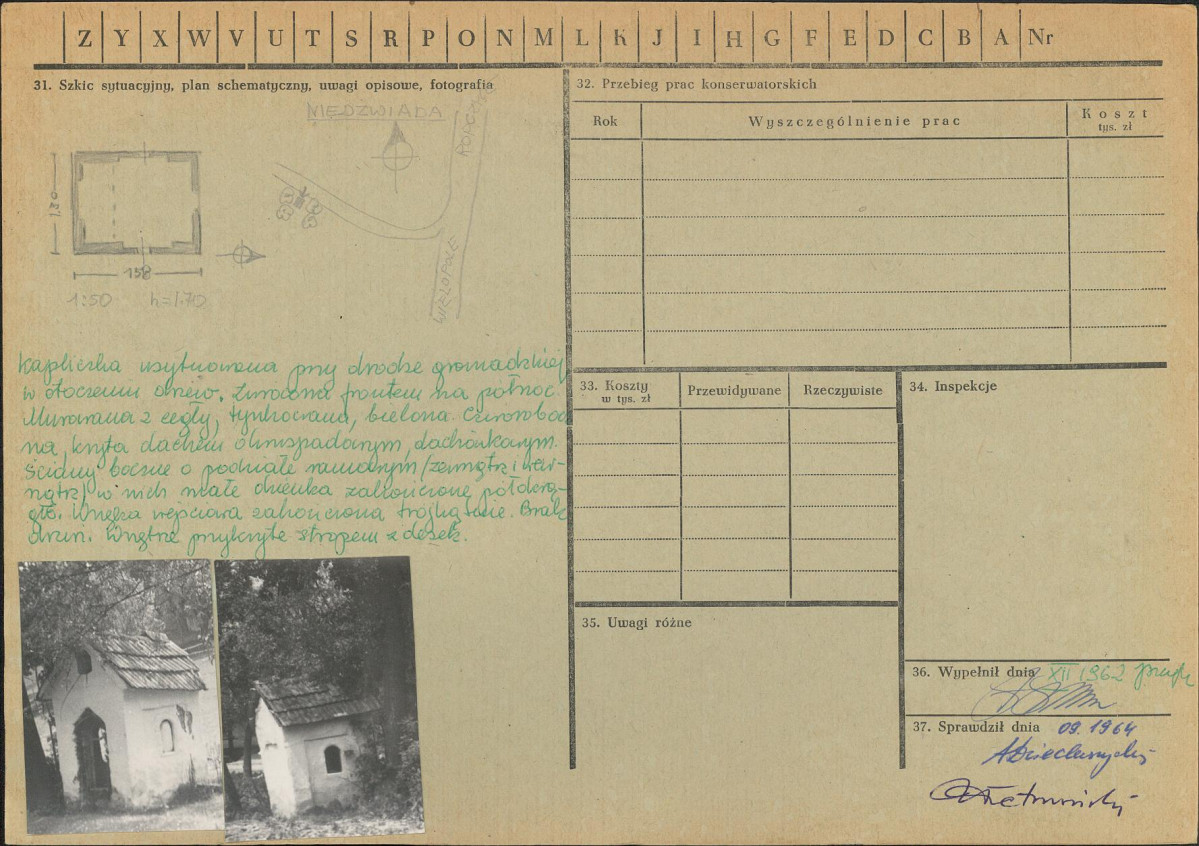 Z Y X W V U T S R P O N M L K J I H G F E D C B A Nr
31. Szkic sytuacyjny, plan schematyczny, uwagi opisowe, fotografia
NIEDZWIADA
WIELOPOLE
1,80
158
1:50 h=1.70
Kapliczka usytuowana przy drodze gromadzkiej
w otoczeniu drzew. Zwrócona frontem na północ.
Murowana z cegły, tynkowana, bielona. Czworobocz
na, kryta dachem dwuspadowym, dachówkowym.
Ściany boczne o podziale ramowym /zewnątrz i wew-
nątrz/ w nich małe okienka zakończone półokrą-
gło. Wnęka wejściowa zakończona trójkątnie. Brak
drzwi. Wnętrze przykryte stropem z desek.
32. Przebieg prac konserwatorskich
Rok Wyszczególnienie prac Koszt
tys. zł
33. Koszty
w tys. zł
Przewidywane Rzeczywiste
34. Inspekcje
35. Uwagi różne
36. Wypełnił dnia XII 1962
37. Sprawdził dnia 09.1964